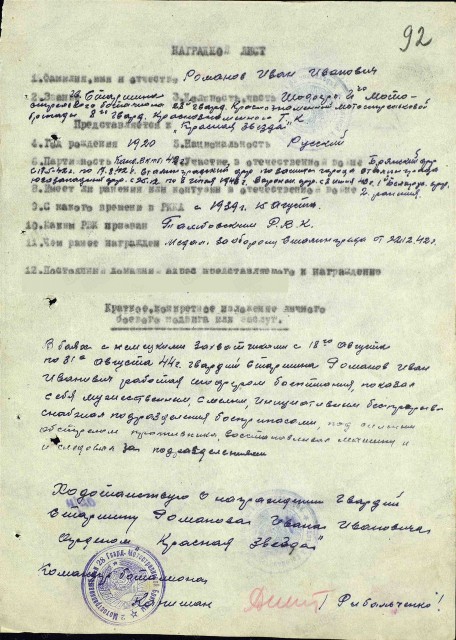 92
НАГРАДНОЙ ЛИСТ
1.Фамилия,имя и отчество Романов Иван Иванович
2.Звание Гв. Старшина 3.Должность,часть Шофера Мото-
стрелкового батальона гвард. Краснознаменной мотострелковой
бригады 8го гвард. Краснознаменного Т.К.
Представляется к "Красная Звезда"
4.Год рождения 1920 5.Национальность Русский
6.Партийность Канд. 7.Участие в отечественной войне Брянский фр
Сталинградский фр
8.Имеет ли ранения или контузии в отечественной войне 2 ранения
9.С какого времени в РККА с 1939г. Августа
10.Каким РВК призван Тамбовским Р.В.К.
11.Чем ранее награжден Медал. За оборону Сталинграда от 22.12.42г.
12.Постоянный домашний адрес представляемого к награждению
Краткое,конкретное изложение личного
боевого подвига или заслуг.
В боях с немецкими захватчиками с 18го августа
по 31е августа 44г. гвардий старшина Романов Иван
Иванович работая шофером боепитания, показал
себя мужественным, смелым, инициативным беспрерывно
снабжая подразделения боеприпасами, под сильным
обстрелом противника, восстанавливал машину и
и следовал за подразделениями
Ходатайствую о награждении гвардий
Старшину Романова Ивана Ивановича
Орденом "Красная Звезда"
Командир батальона
Капитан / Рибальченко/